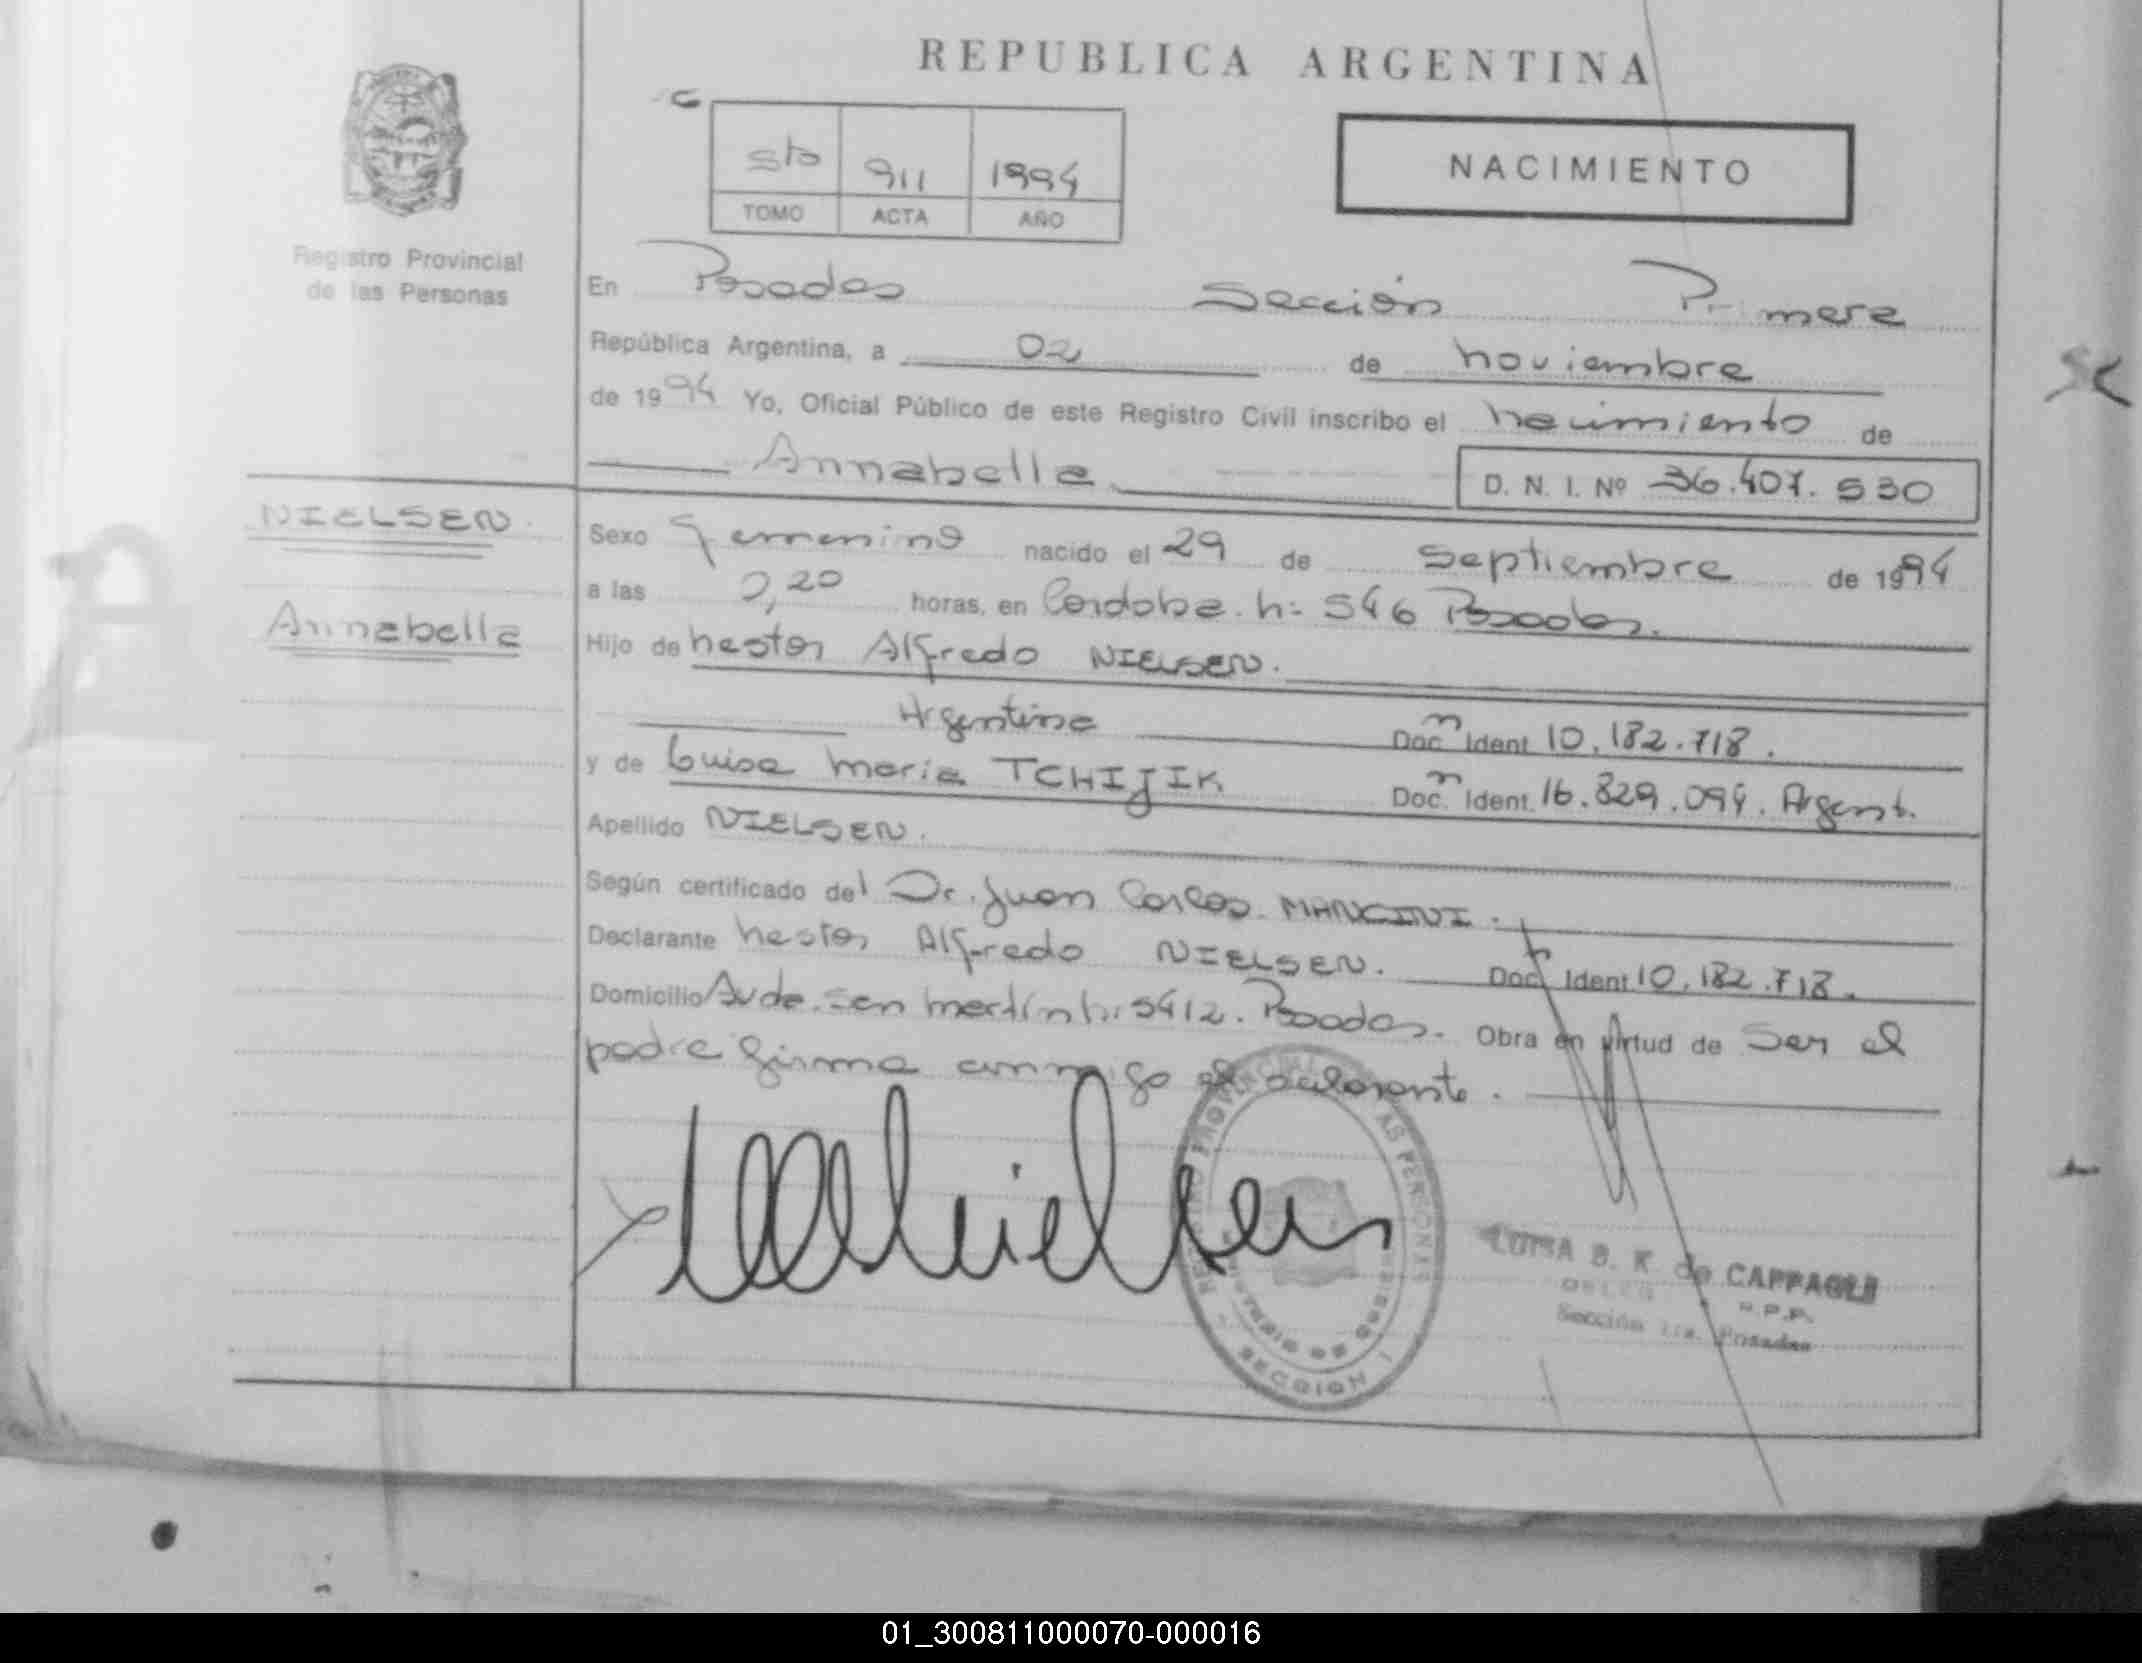 REPUBLICA ARGENTINA
5to 911 1994
TOMO ACTA AÑO
NACIMIENTO
Registro Provincial
de las Personas
En Posadas Sección Primera
República Argentina, a 02 de noviembre
de 1994 Yo, Oficial Público de este Registro Civil inscribo el nacimiento de
Annabella
D. N. I. Nº 36.407.530
NIELSEN.
Annabella
Sexo Femenino nacido el 29 de Septiembre de 1994
a las 0,20 horas, en Cordoba. n= 546 Posadas.
Hijo de nestor Alfredo NIELSEN.
Argentino Doc. Ident 10.182.718.
y de Luisa maria TCHIJIK Doc. Ident. 16.829.094. Argent.
Apellido NIELSEN.
Según certificado del Dr. Juan Carlos MANCINI.
Declarante nestor Alfredo NIELSEN. Doc. Ident 10.182.718.
Domicilio Avda. San martín n: 5412. Posadas. Obra en virtud de Ser el
padre firma conmigo el declarante.
REGISTRO PROVINCIAL DE LAS PERSONAS
MINISTERIO DE GOBIERNO
SECCION I
LUISA B. K de CAPPAGLI
R.P.P.
Sección 1ra. Posadas
01_300811000070-000016